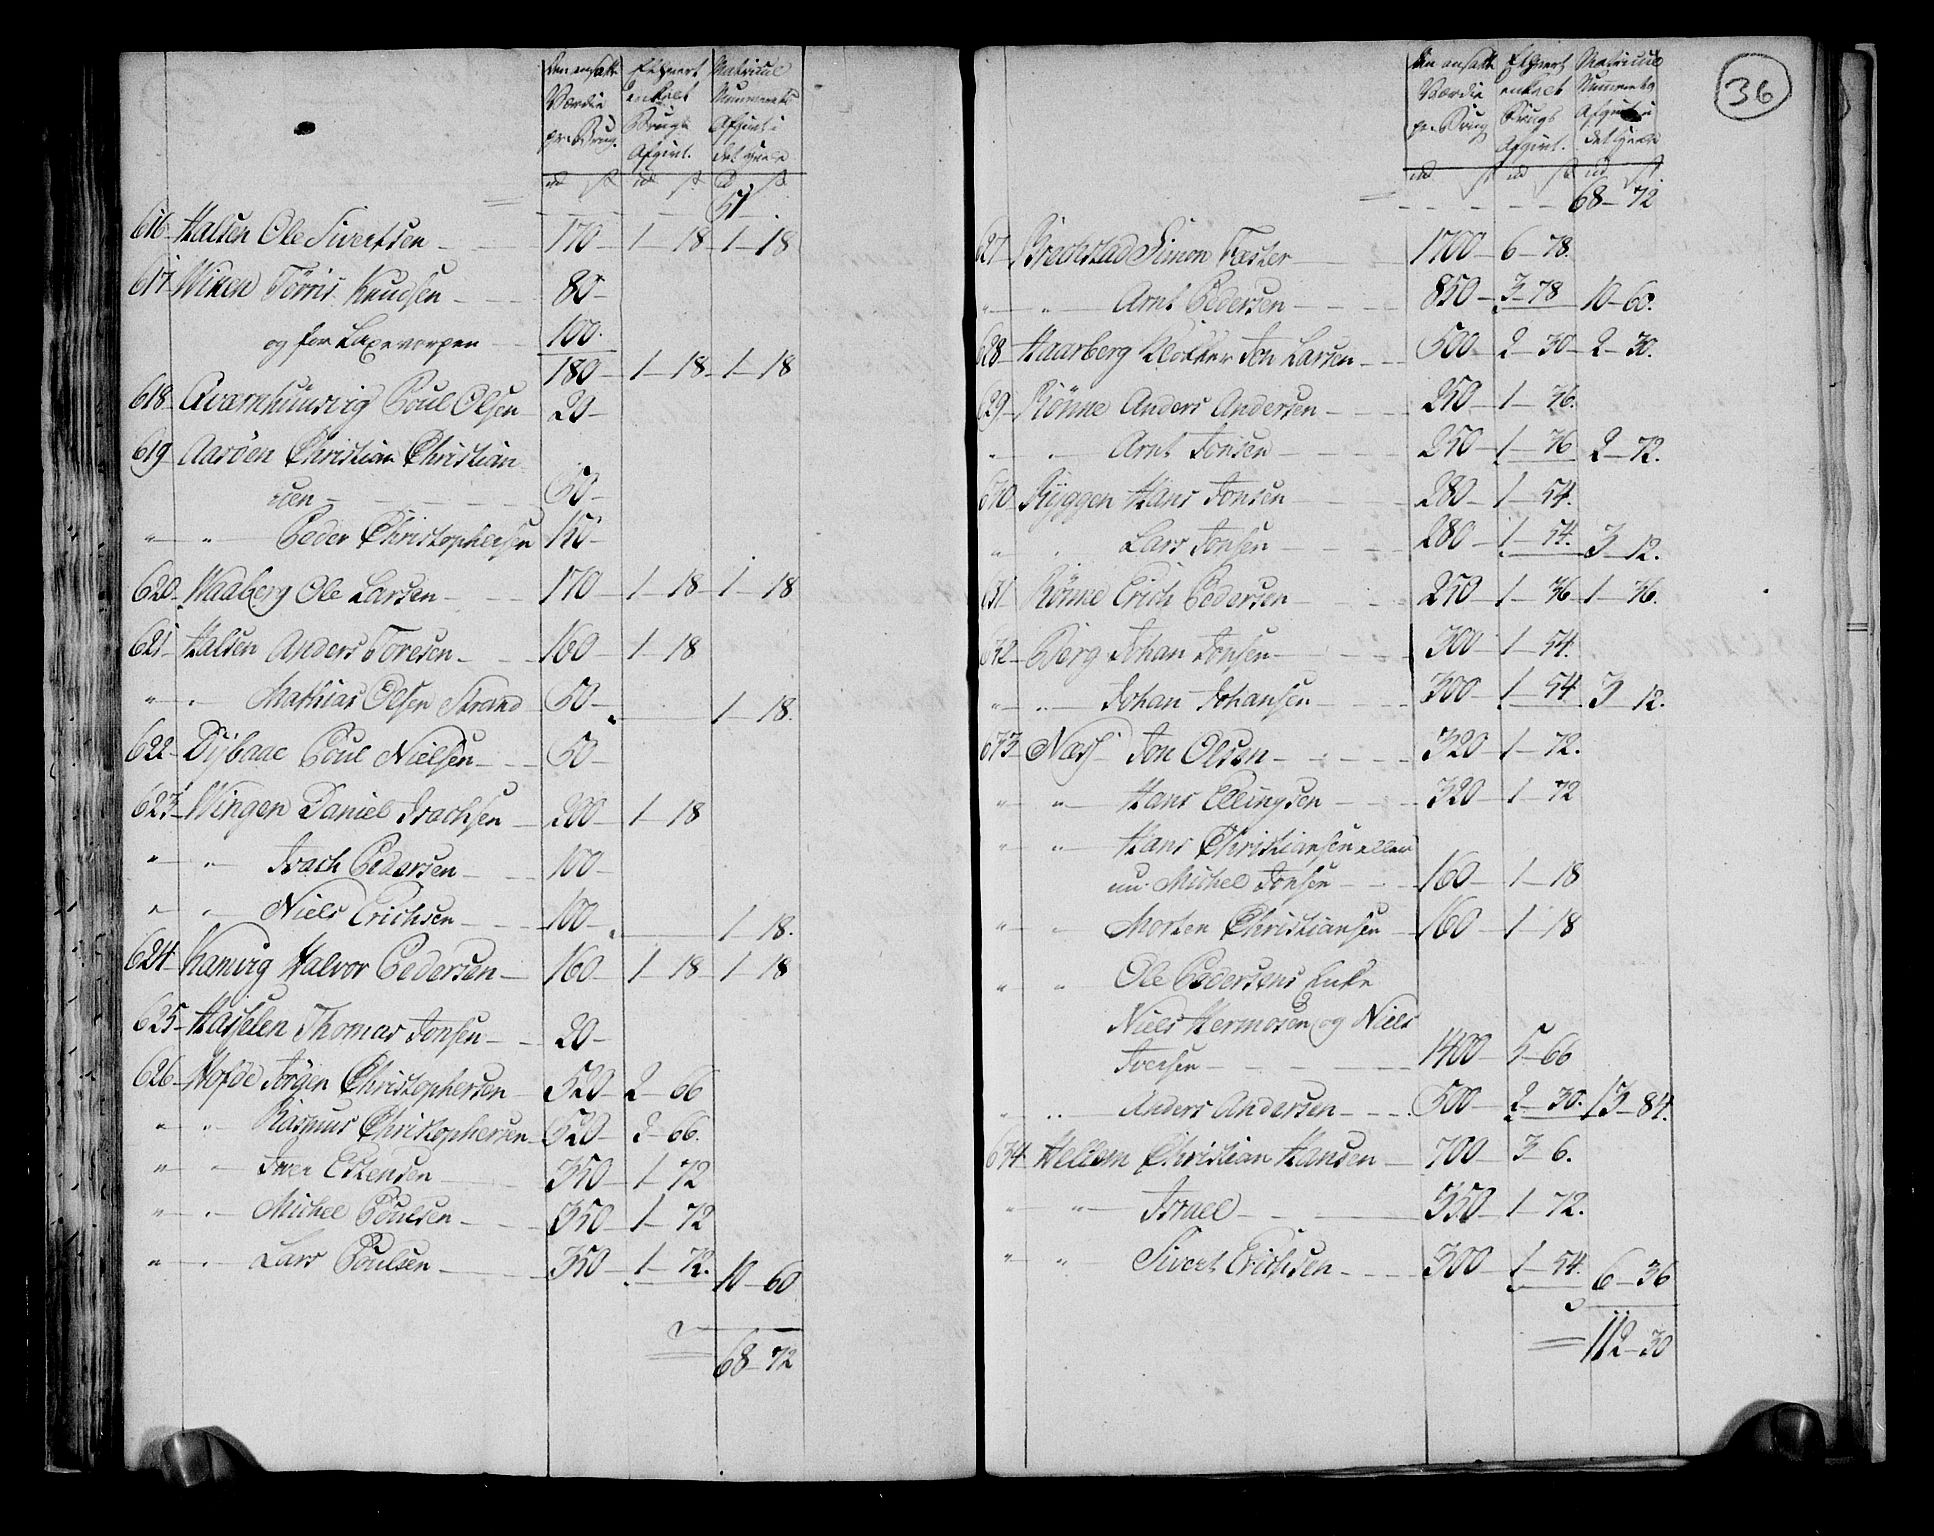 Den ansatte Værdie pr. Brug.
Ethvert enkelt Brugs Afgivt.
Matricul Nummerets Afgivt i det heele
rd ß rd ß rd ß
51 -
616 Halsen Ole Sivertsen - 170 - 1 - 18 - 1 - 18
617 Wiken Törris Knudsen - 80 -
og for Laxevorpen - 100.
180 - 1 - 18 - 1 - 18
618 Qværnhuusvig Poul Olsen - 20 -
619 Aaröen Christian Christian
sen - 50 -
" " Peder Christophersen 150 -
620 Waaberg Ole Larsen - 170 - 1 - 18 - 1 - 18
621 Halsen Anders Toresen - 160 - 1 - 18
" " Mathias Olsen Strand 50 - 1 - 18.
622 Dybaae Poul Nielsen - 50 -
623 Wingen Daniel Isachsen - 200 - 1 - 18
" " Isach Pedersen - 100 -
" " Niels Erichsen - 100 - 1 - 18.
624 Kamvig Halvor Pedersen - 160 - 1 - 18 - 1 - 18
625 Hasselen Thomas Jonsen - 20 -
626 Hofde Jörgen Christophersen 520 - 2 - 66
" " Rasmus Christophersen 520 - 2 - 66.
" " Iver Estensen 350 - 1 - 72
" " Michel Poulsen - 350 - 1 - 72
" " Lars Poulsen - 350 - 1 - 72. 10 - 60
68 - 72
36
Den ansatte Værdie pr. Brug
Ethvert enkelt Brugs Afgivt.
Matricul Nummerets Afgivt i det heele
rd ß rd ß rd ß
68 - 72
627 Brækstad Simon Fæster 1700 - 6 - 78.
" " Arnt Pedersen - 850 - 3 - 78 10 - 60.
628 Haarberg Klokker Jon Larsen - 500 - 2 - 30 - 2 - 30.
629 Rönne Anders Andersen - 250 - 1 - 36.
" " Arnt Jonsen - 250 - 1 - 36 2 - 72.
630 Ryggen Hans Jonsen - 280 - 1 - 54.
" " Lars Jonsen - 280 - 1 - 54. 3 - 12.
631 Rönne Erich Pedersen - 250 - 1 - 36 1 - 36.
632 Berg Johan Jonsen - 300 - 1 - 54.
" " Johan Johansen - 300 - 1 - 54 3 - 12.
633 Næss Jon Olsen - 320 - 1 - 72.
" " Hans Ellingsen - 320 - 1 - 72
" " Hans Christiansen eller
nu Michel Jonsen - 160 - 1 - 18
" " Morten Christiansen - 160 - 1 - 18
" " Ole Pedersens Enke
Niels Hermosen og Niels
Iversen - 1400 - 5 - 66
" " Anders Andersen - 500 - 2 - 30. 13 - 84.
634 Hellem Christian Hansen - 700 - 3 - 6.
" " Israel - 350 - 1 - 72.
" " Sivert Erichsen - 300 - 1 - 54. 6 - 36
112 - 30